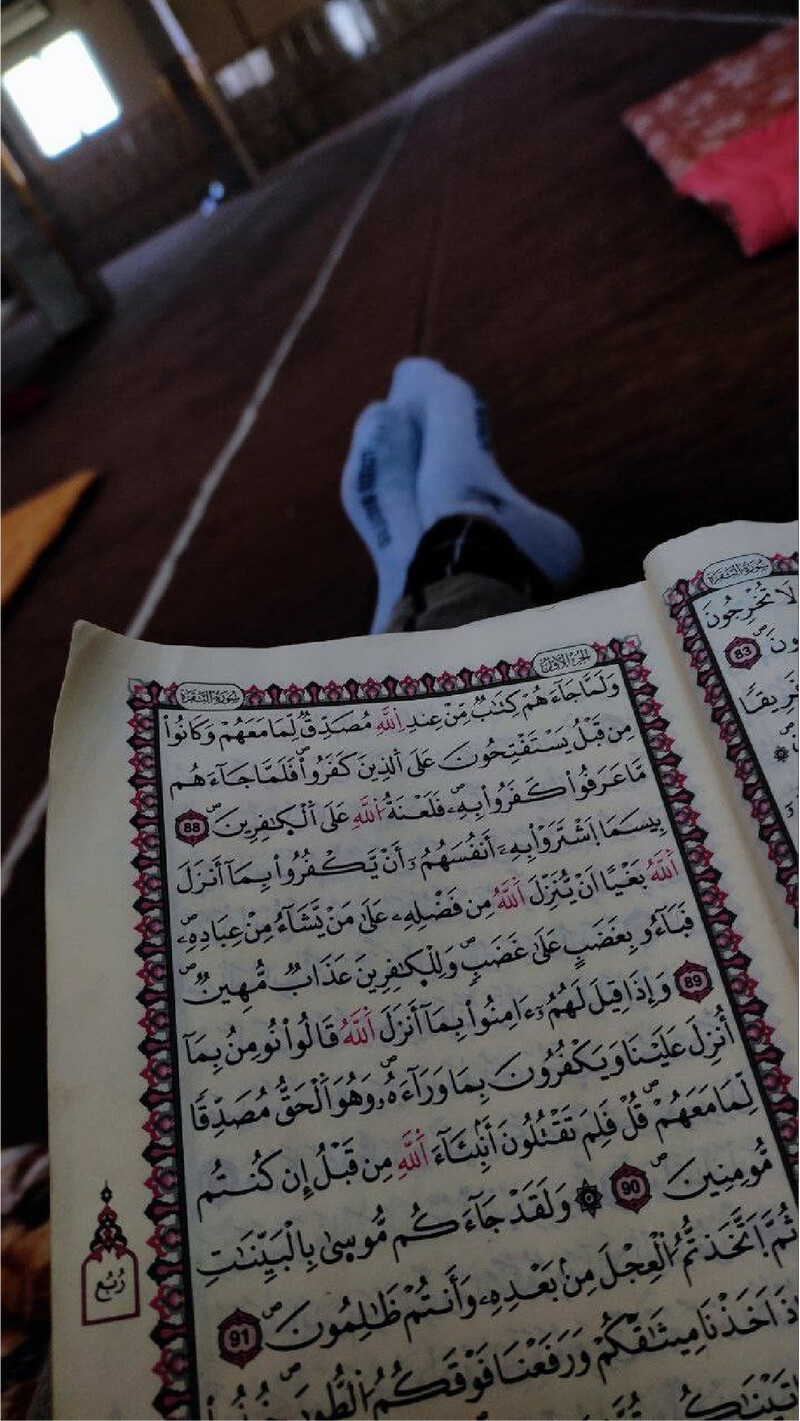 سورة البقرة
لَا تُخْرِجُونَ
83
الجزء الأول
سورة البقرة
وَلَمَّا جَآءَهُمْ كِتَٰبٌ مِّنْ عِندِ اِ۬للَّهِ مُصَدِّقٌ لِّمَا مَعَهُمْ وَكَانُواْ
مِن قَبْلُ يَسْتَفْتِحُونَ عَلَى اَ۬لذِينَ كَفَرُواْ فَلَمَّا جَآءَهُم
مَّا عَرَفُواْ كَفَرُواْ بِهِۦۖ فَلَعْنَةُ اُ۬للَّهِ عَلَى اَ۬لْكٰ۪فِرِينَۖ 88
بِيسَمَا اَ۪شْتَرَوْاْ بِهِۦٓ أَنفُسَهُمُۥٓ أَنْ يَّكْفُرُواْ بِمَآ أَنزَلَ
اَ۬للَّهُ بَغْياً اَنْ يُّنَزِّلَ اَ۬للَّهُ مِن فَضْلِهِۦ عَلَىٰ مَنْ يَّشَآءُ مِنْ عِبَادِهِۦۖ
فَبَآءُو بِغَضَبٍ عَلَىٰ غَضَبٍۖ وَلِلْكٰ۪فِرِينَ عَذَابٌ مُّهِينٌۖ
89 وَإِذَا قِيلَ لَهُمُۥٓ ءَامِنُواْ بِمَآ أَنزَلَ اَ۬للَّهُ قَالُواْ نُومِنُ بِمَآ
أُنزِلَ عَلَيْنَا وَيَكْفُرُونَ بِمَا وَرَآءَهُۥۖ وَهُوَ اَ۬لْحَقُّ مُصَدِّقاً
لِّمَا مَعَهُمْۖ قُلْ فَلِمَ تَقْتُلُونَ أَنۢبِئَآءَ اَ۬للَّهِ مِن قَبْلُ إِن كُنتُم
مُّومِنِينَۖ 90 ۞ وَلَقَدْ جَآءَكُم مُّوسۭىٰ بِالْبَيِّنَٰتِ
ثُمَّ اَ۪تَّخَذتُّمُ اُ۬لْعِجْلَ مِنۢ بَعْدِهِۦ وَأَنتُمْ ظَٰلِمُونَۖ 91
وَإِذَ اَخَذْنَا مِيثَٰقَكُمْ وَرَفَعْنَا فَوْقَكُمُ اُ۬لطُّورَۖ خُذُواْ
رُبُع